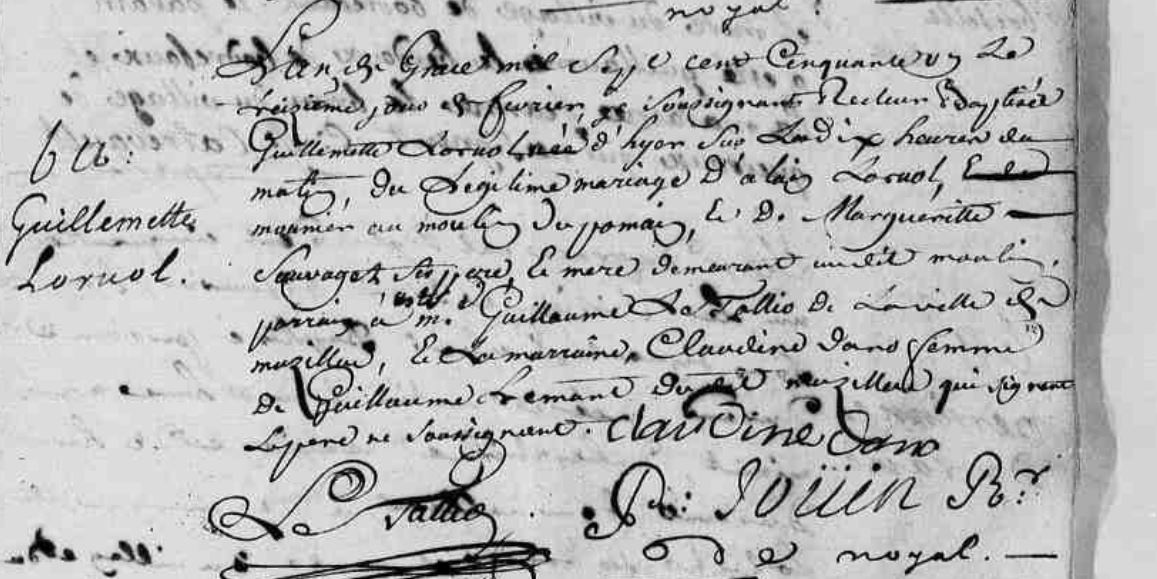 noyal.
L'an de Grace mil Sept cent Cinquante un Le
treisième jour de fevrier, je Soussignant Recteur Ay baptisée
ba:
Guillemette
Lorvol.
Guillemette Lorvol, née d'hyer sur Les dix heures du
matin, du Legitime mariage d'alain Lorvol,
meunier au moulin du pomain, Et de Margueritte
Sauvaget Ses pere Et mere demeurant audit moulin,
parrain à esté m.e Guillaume Le Tallio de La ville de
muzillac, Et La marraine, Claudine dano femme
de Guillaume Lemané dudit muzillac qui signent
Le pere ne Soussignant. Claudine dano
Le Tallio R: Jouin R.r
de noyal.